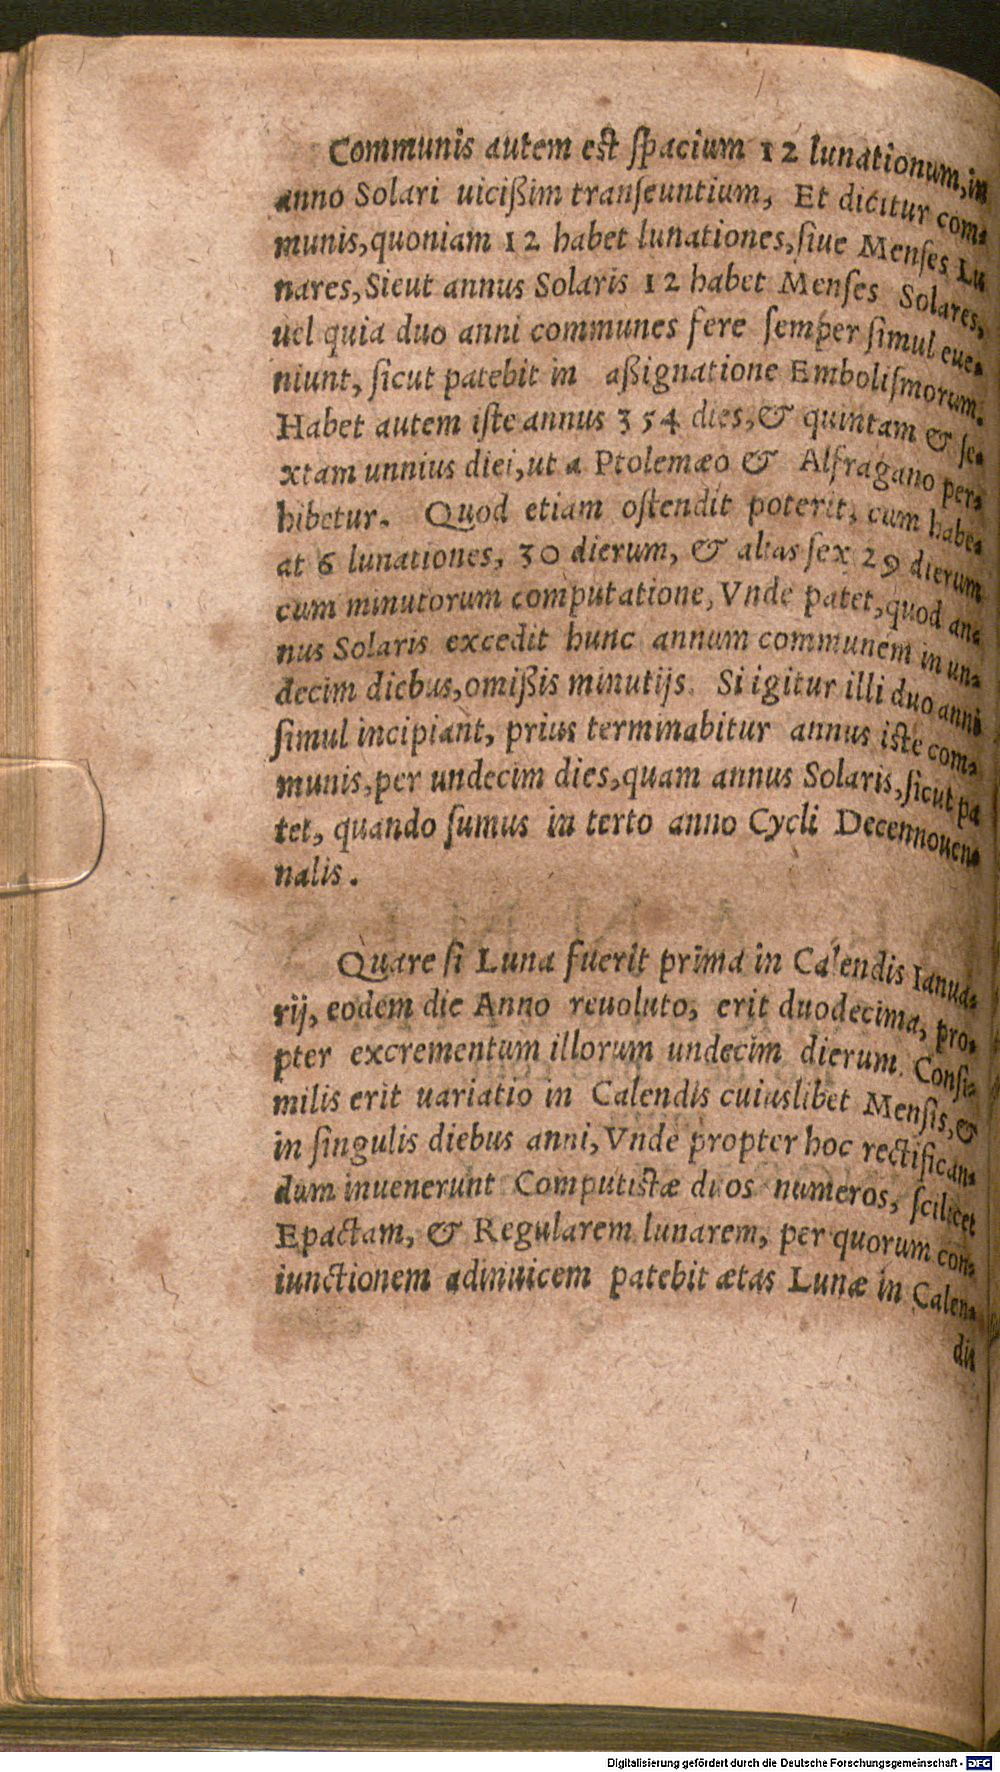 Communis autem est ſpacium 12 lunationum, in
anno Solari uicißim tranſeuntium, Et dicitur com⸗
munis, quoniam 12 habet lunationes, ſiue Menſes Lu
nares, Sicut annus Solaris 12 habet Menſes Solares,
uel quia duo anni communes fere ſemper ſimul eue⸗
niunt, ſicut patebit in aßignatione Emboliſmorum.
Habet autem iſte annus 354 dies, & quintam & ſe⸗
xtam unnius diei, ut a Ptolemæo & Alfragano per⸗
hibetur. Quod etiam oſtendit poterit, cum habe⸗
at 6 lunationes, 30 dierum, & alias ſex 29 dierum
cum minutorum computatione, Vnde patet, quod an⸗
nus Solaris excedit hunc annum communem in un⸗
decim diebus, omißis minutijs. Si igitur illi duo anni
ſimul incipiant, prius terminabitur annus iſte com⸗
munis, per undecim dies, quam annus Solaris, ſicut pa
tet, quando ſumus in terto anno Cycli Decennouen⸗
nalis.
Quare ſi Luna fuerit prima in Calendis Ianua⸗
rij, eodem die Anno reuoluto, erit duodecima, pro⸗
pter excrementum illorum undecim dierum. Conſi⸗
milis erit uariatio in Calendis cuiuslibet Menſis, &
in ſingulis diebus anni, Vnde propter hoc rectifican⸗
dum inuenerunt Computiſtæ duos numeros, ſcilicet
Epactam, & Regularem lunarem, per quorum con⸗
iunctionem adinuicem patebit ætas Lunæ in Calen⸗
dis
Digitalisierung gefördert durch die Deutsche Forschungsgemeinschaft - DFG